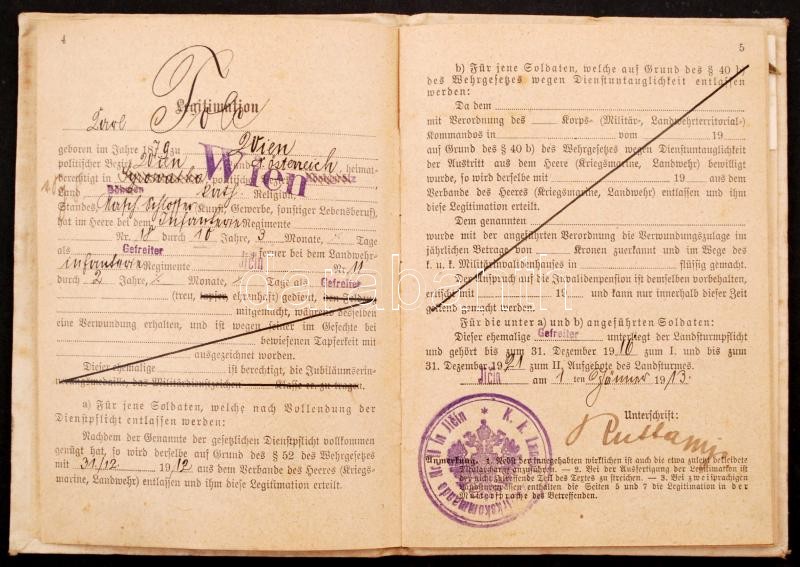 4
Legitimation
Karl
geboren im Jahre 1879 zu Wien
politischer Bezirk Wien Österreich, heimat-
berechtigt in politischer
Land Böhmen kath. Religion,
Standes, Kunst, Gewerbe, sonstiger Lebensberuf),
hat im Heere bei dem Infanterie Regimente
Nr. 18 durch 10 Jahre, 3 Monate, Tage
als Gefreiter ferner bei dem Landwehr-
infanterie Regimente Jičín Nr. 11
durch 2 Jahre, Monate, Tage als Gefreiter
(treu, tapfer ehrenhaft) gedient, den Feldzug
mitgemacht, während desselben
eine Verwundung erhalten, und ist wegen seiner im Gefechte bei
bewiesenen Tapferkeit mit
ausgezeichnet worden.
Dieser ehemalige ist berechtigt, die Jubiläumserin-
nerungsmedaille, das Militärdienstzeichen Klasse etc. zu tragen.
Wien
a) Für jene Soldaten, welche nach Vollendung der
Dienstpflicht entlassen werden:
Nachdem der Genannte der gesetzlichen Dienstpflicht vollkommen
genügt hat, so wird derselbe auf Grund des § 52 des Wehrgesetzes
mit 31/12 1912 aus dem Verbande des Heeres (Kriegs-
marine, Landwehr) entlassen und ihm diese Legitimation erteilt.
5
b) Für jene Soldaten, welche auf Grund des § 40 b)
des Wehrgesetzes wegen Dienstuntauglichkeit entlassen
werden:
Da dem
mit Verordnung des Korps- (Militär-, Landwehrterritorial-)
Kommandos in vom 19
auf Grund des § 40 b) des Wehrgesetzes wegen Dienstuntauglichkeit
der Austritt aus dem Heere (Kriegsmarine, Landwehr) bewilligt
wurde, so wird derselbe mit 19 aus dem
Verbande des Heeres (Kriegsmarine, Landwehr) entlassen und ihm
diese Legitimation erteilt.
Dem genannten
wurde mit der angeführten Verordnung die Verwundungszulage im
jährlichen Betrage von Kronen zuerkannt und im Wege des
k. u. k. Militärinvalidenhauses in flüssig gemacht.
Der Anspruch auf die Invalidenpension ist demselben vorbehalten,
erlischt mit 19 und kann nur innerhalb dieser Zeit
geltend gemacht werden.
Für die unter a) und b) angeführten Soldaten:
Dieser ehemalige Gefreiter unterliegt der Landsturmpflicht
und gehört bis zum 31. Dezember 1916 zum I. und bis zum
31. Dezember 1921 zum II. Aufgebote des Landsturmes.
Jičín am 1 ten Jänner 1913.
Unterschrift:
Anmerkung. 1. Nebst der innegehabten wirklichen ist auch die etwa zuletzt bekleidete
Titularcharge anzuführen. — 2. Bei der Ausfertigung der Legitimation ist
der nicht zutreffende Teil des Textes zu streichen. — 3. Bei zweisprachigen
Landsturmpässen enthalten die Seiten 5 und 7 die Legitimation in der
Muttersprache des Betreffenden.
databanth